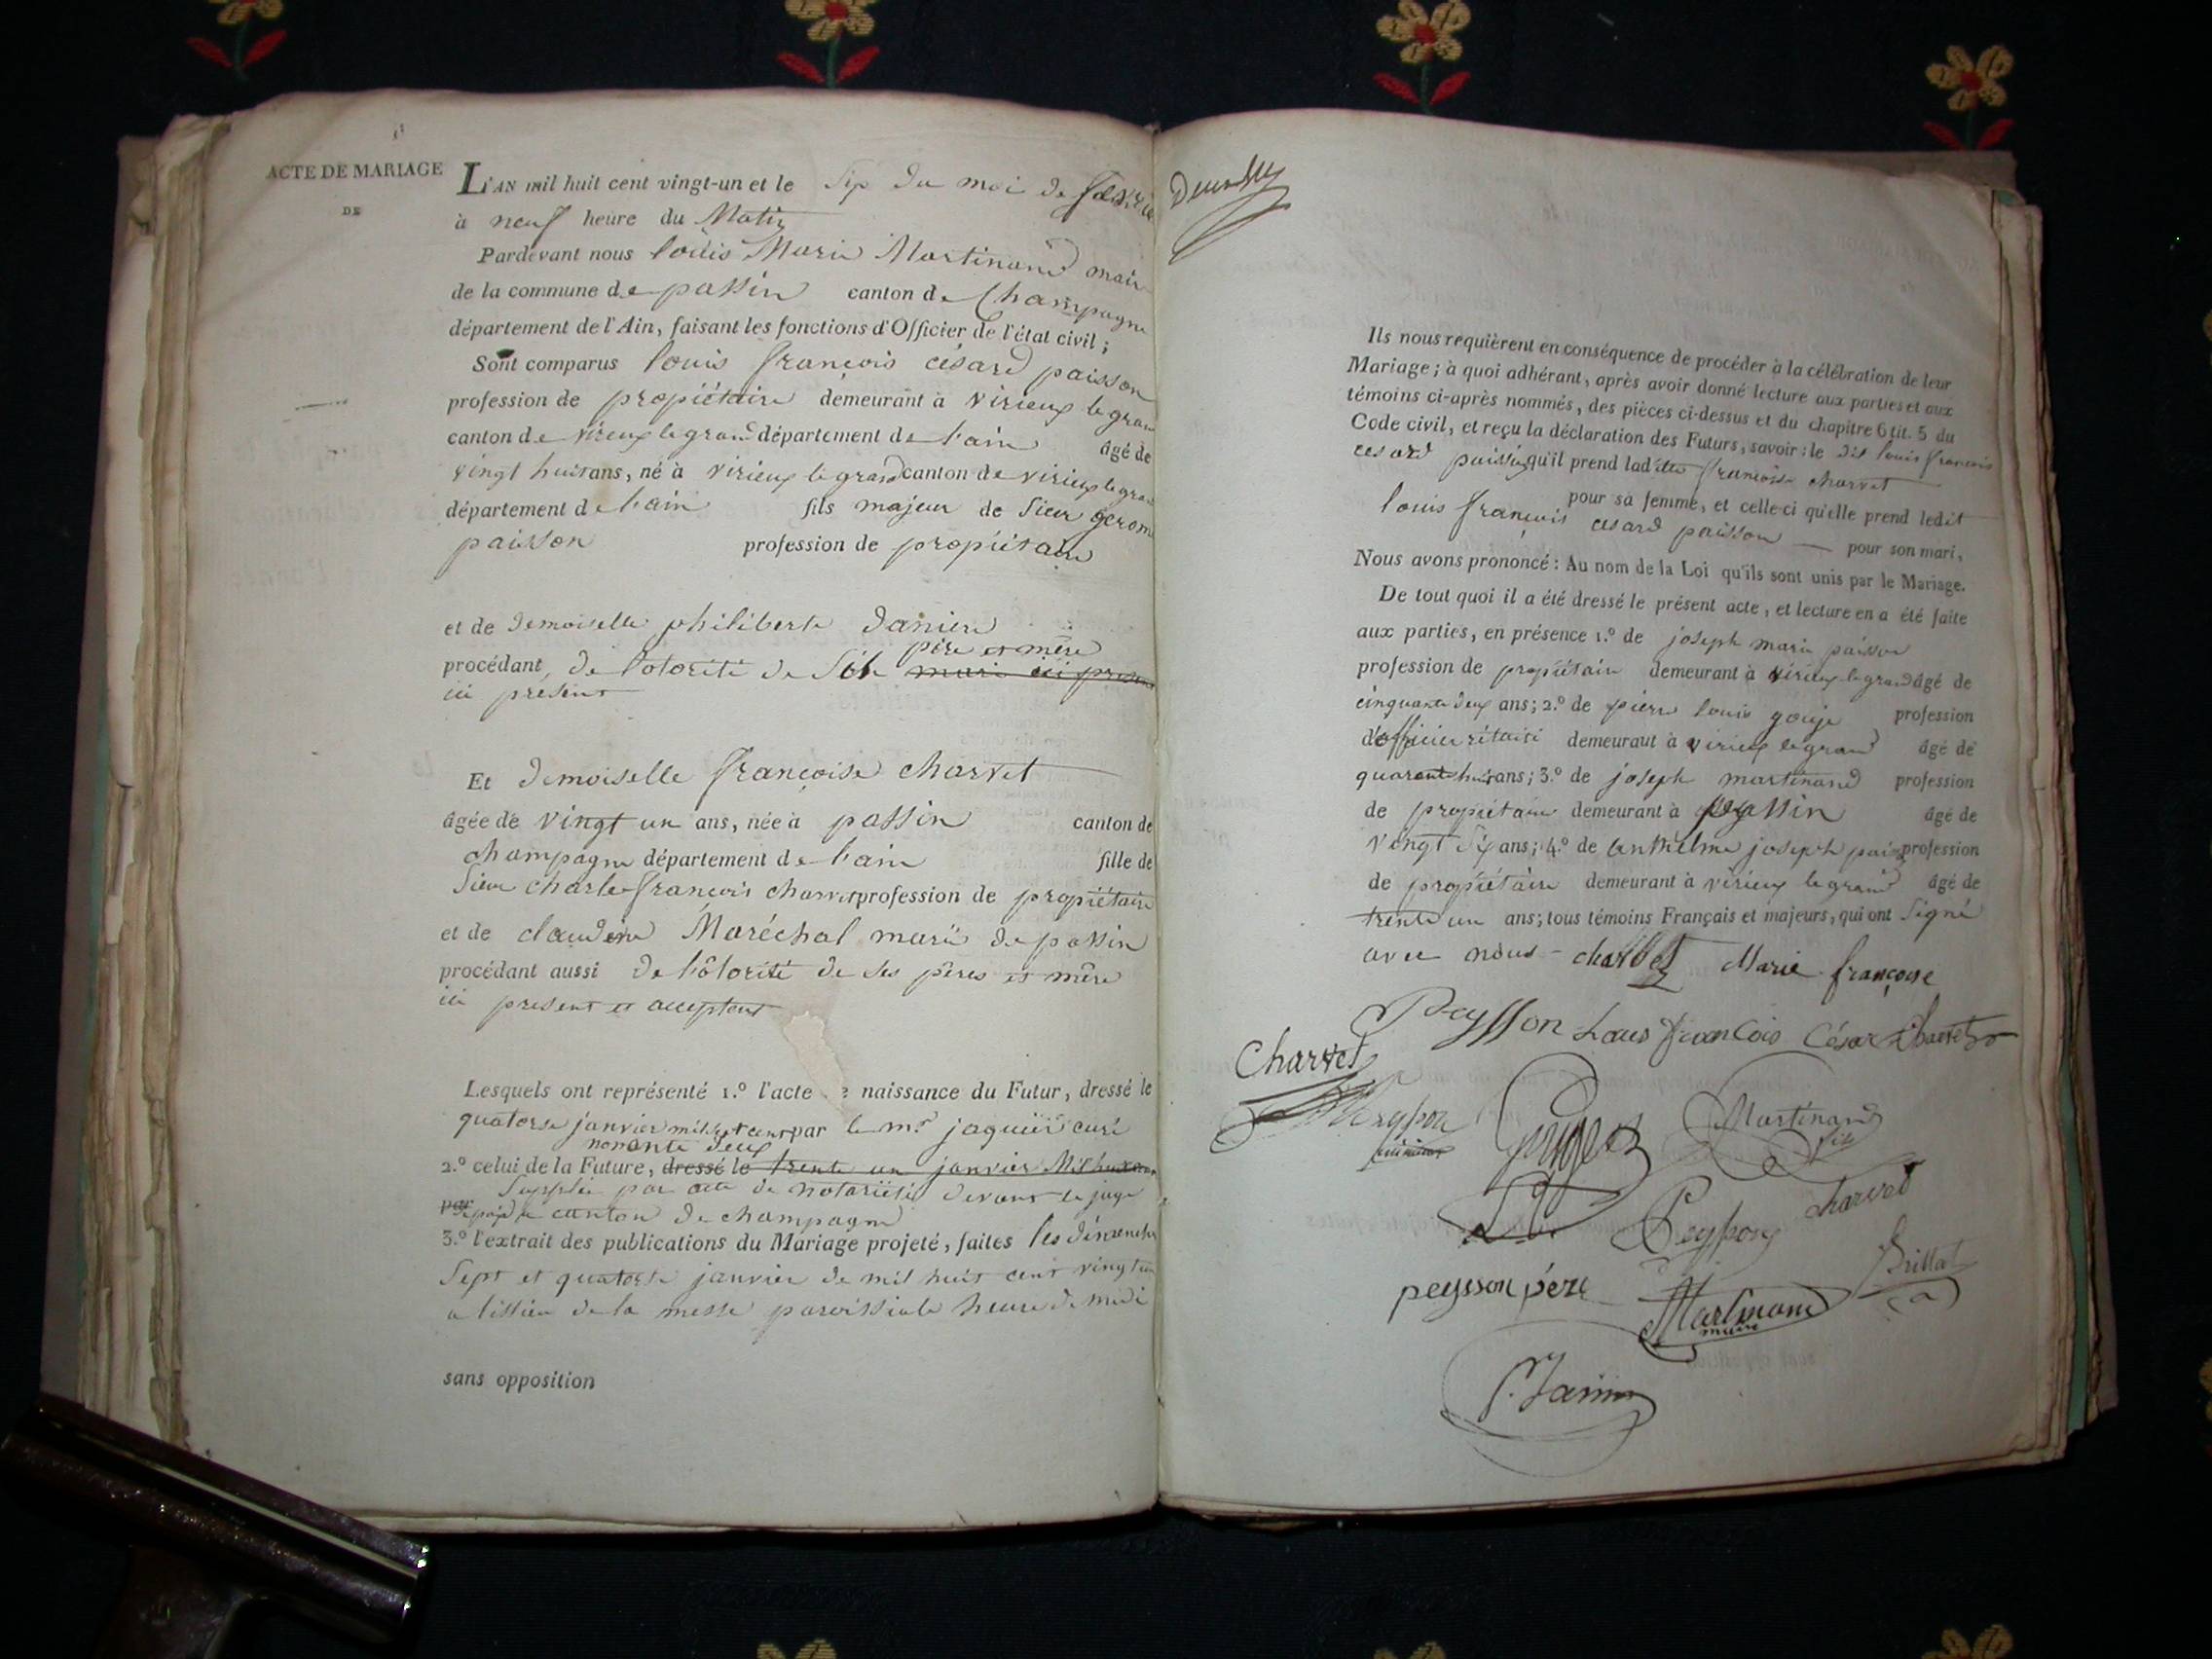 ACTE DE MARIAGE
DE
L'AN mil huit cent vingt-un et le six du moi de
à neuf heure du Matin
Pardevant nous louis Marie Martinand mair
de la commune de passin canton de Champagne
département de l'Ain, faisant les fonctions d'Officier de l'état civil ;
Sont comparus louis françois césard paisson
profession de propiétaire demeurant à virieux le gran
canton de virieux le grand département de l'ain âgé de
vingt huit ans, né à virieux le grand canton de virieux le gra
département de l'ain fils majeur de Sieur gerom
paisson profession de propiétaire
et de demoiselle philiberte daniere
père et mère
procédant, de l'otorité de mari ici present
ici present
Et demoiselle françoise charvet
âgée de vingt un ans, née à passin canton de
champagne département de l'ain fille de
Sieur charle françois charvet profession de propiétaire
et de claudine Maréchal marié de passin
procédant aussi de l'ôtorité de ses pères et mère
ici present et acceptant
Lesquels ont représenté 1.º l'acte naissance du Futur, dressé le
quatorse janvier mil sept cent par le mr jaquier curé
nonante deux
2.º celui de la Future, dressé le trente un janvier Mil huit cent
Supplée par acte de notoriété devant le juge
par de paix du canton de champagne
3.º l'extrait des publications du Mariage projeté, faites les dimenche
Sept et quatorse janvier de mil huit cent vingt un
a lissieu de la messe paroissiale heure de midi
sans opposition
Ils nous requièrent en conséquence de procéder à la célébration de leur
Mariage ; à quoi adhérant, après avoir donné lecture aux parties et aux
témoins ci-après nommés, des pièces ci-dessus et du chapitre 6 tit. 5 du
Code civil, et reçu la déclaration des Futurs, savoir : le dit louis françois
cesard paisson qu'il prend ladite françoise charvet
pour sa femme, et celle-ci qu'elle prend ledit
louis françois cesard paisson pour son mari,
Nous avons prononcé : Au nom de la Loi qu'ils sont unis par le Mariage.
De tout quoi il a été dressé le présent acte, et lecture en a été faite
aux parties, en présence 1.º de joseph marie paisson
profession de propiétaire demeurant à virieux le grand âgé de
cinquante deux ans ; 2.º de pierre louis gouje profession
d'officier rétairé demeurant à virieux le grand âgé de
quarante huit ans ; 3.º de joseph martinand profession
de propietaire demeurant à passin âgé de
vingt six ans ; 4.º de anthelme joseph paisson profession
de propiétaire demeurant à virieux le grand âgé de
trente un ans ; tous témoins Français et majeurs, qui ont Signé
avec nous - charvet Marie françoise
Peysson Louis François César Charvet
Charvet
Martinand
fils
Peysson charvet
peysson père Brillat
Martinand
maire